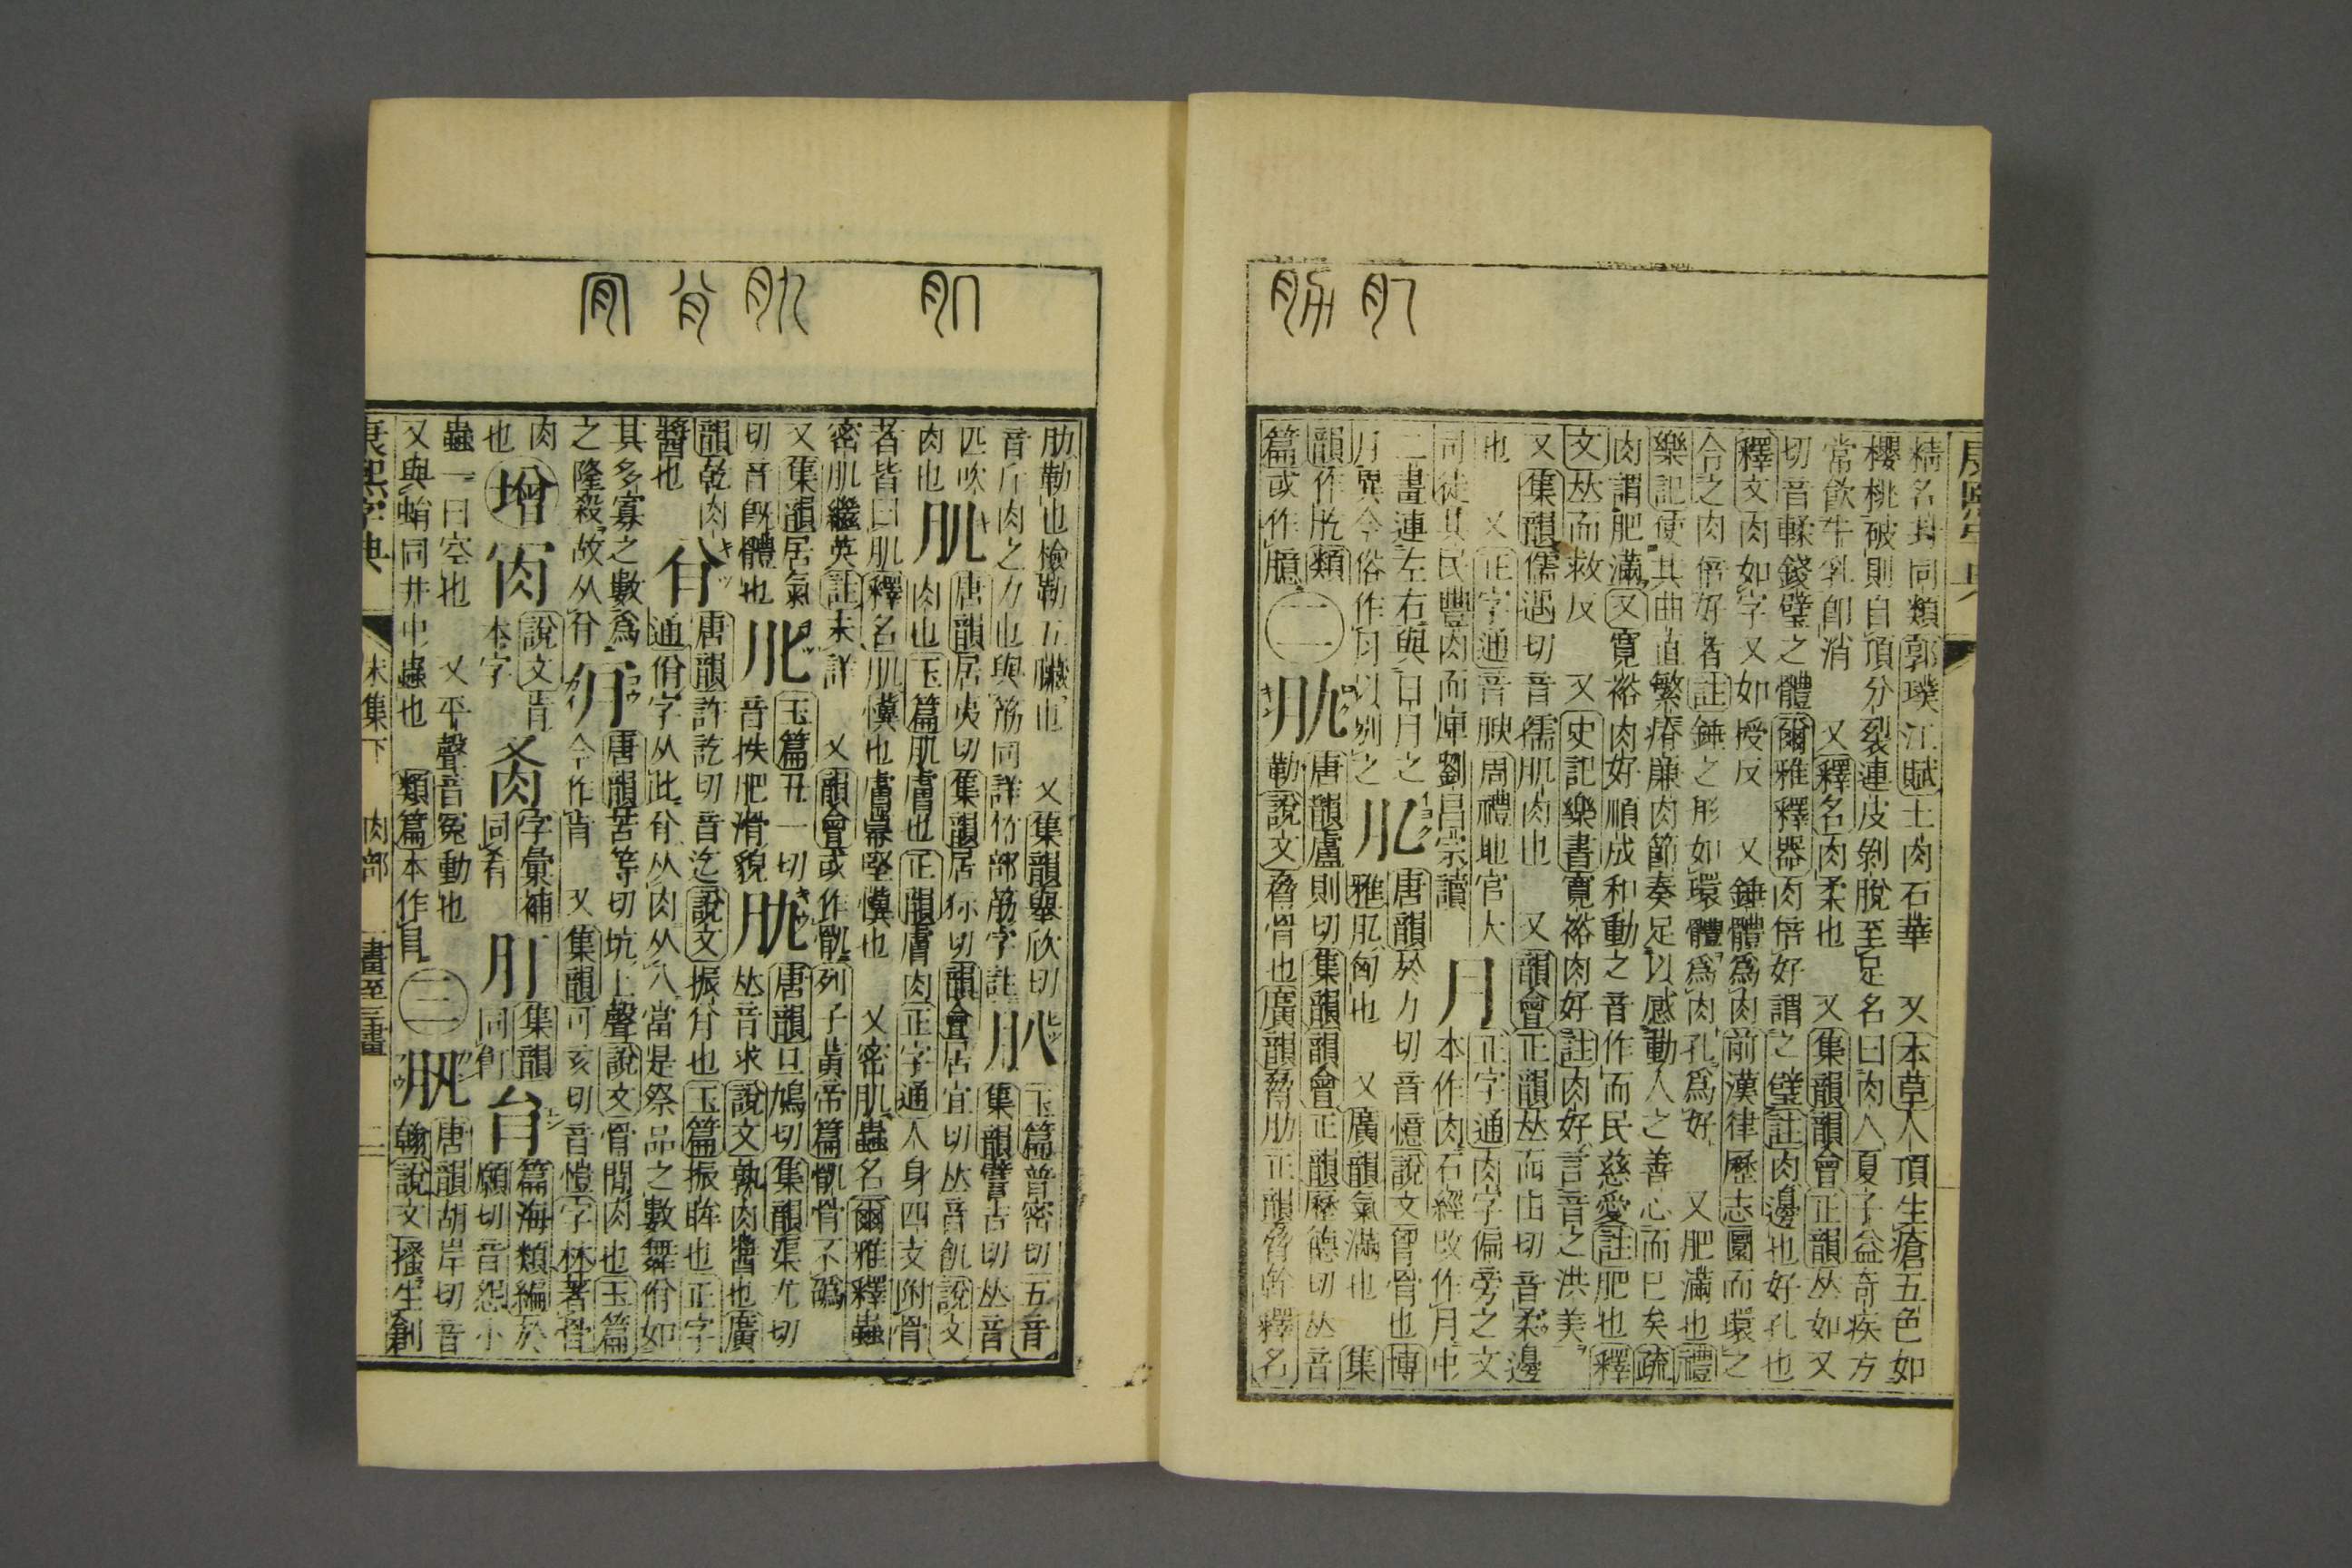 精名其同類郭璞江賦土肉石華 又本草人頂生瘡五色如
櫻桃破則自頂分裂連皮剝脫至足名曰肉人夏子益奇疾方
常飲牛乳卽消 又釋名肉柔也 又集韻韻會正韻𠀤如又
切音輮錢璧之體爾雅釋器肉倍好謂之璧註肉邊也好孔也
釋文肉如字又如授反 又錘體爲肉前漢律歷志圜而環之
令之肉倍好者註錘之形如環體爲肉孔爲好 又肥滿也禮
樂記使其曲直繁瘠廉肉節奏足以感動人之善心而已矣疏
肉謂肥滿又寬裕肉好順成和動之音作而民慈愛註肥也釋
文𠀤而救反 又史記樂書寬裕肉好註肉好言音之洪美
又集韻儒遇切音孺肌肉也 又韻會正韻𠀤而由切音柔邊
也 又正字通音腴周禮地官大
司徒其民豐肉而庳劉昌宗讀
月 正字通肉字偏旁之文
本作肉石經改作月中
二畫連左右與日月之
月異今俗作⺼以別之
肊 唐韻於力切音憶說文胷骨也博
雅肊匈也 又廣韻氣滿也 集
韻作肐類
篇或作臆
二
肋 唐韻盧則切集韻韻會正韻歷德切𠀤音
勒說文脅骨也廣韻脅肋正韻脅幹釋名
肋勒也檢勒五臟也 又集韻舉欣切
音斤肉之力也與筋同詳竹部筋字註
玉篇普密切五音
集韻譬吉切𠀤音
匹吹
肉也
肌 唐韻居夷切集韻居狋切韻會居宜切𠀤音飢說文
肉也玉篇肌膚也正韻膚肉正字通人身四支附骨
者皆曰肌釋名肌懻也膚幕堅懻也 又密肌蟲名爾雅釋蟲
密肌繼英註未詳 又韻會或作飢列子黃帝篇飢骨不譌
又集韻居氣
切音旣體也
玉篇丑一切
音抶肥滑貌
肍 唐韻巨鳩切集韻渠尤切
𠀤音求說文孰肉醬也廣
韻乾肉
醬也
唐韻許訖切音迄說文振㕣也玉篇振眸也正字
通佾字从此㕣从肉从八當是祭品之數舞佾如
其多寡之數爲
之隆殺故从㕣
唐韻苦等切坑上聲說文骨閒肉也玉篇
今作肯 又集韻可亥切音愷字林著骨
肉
也
增
肎 說文肯
本字
字彙補
同肴
集韻
同
篇海類編於
願切音怨小
蟲一曰空也 又平聲音冤動也
又與蜎同井中蟲也 類篇本作肙
三
唐韻胡岸切音
翰說文搔生創
康熙字典
未集下 肉部 畫至三畫 二